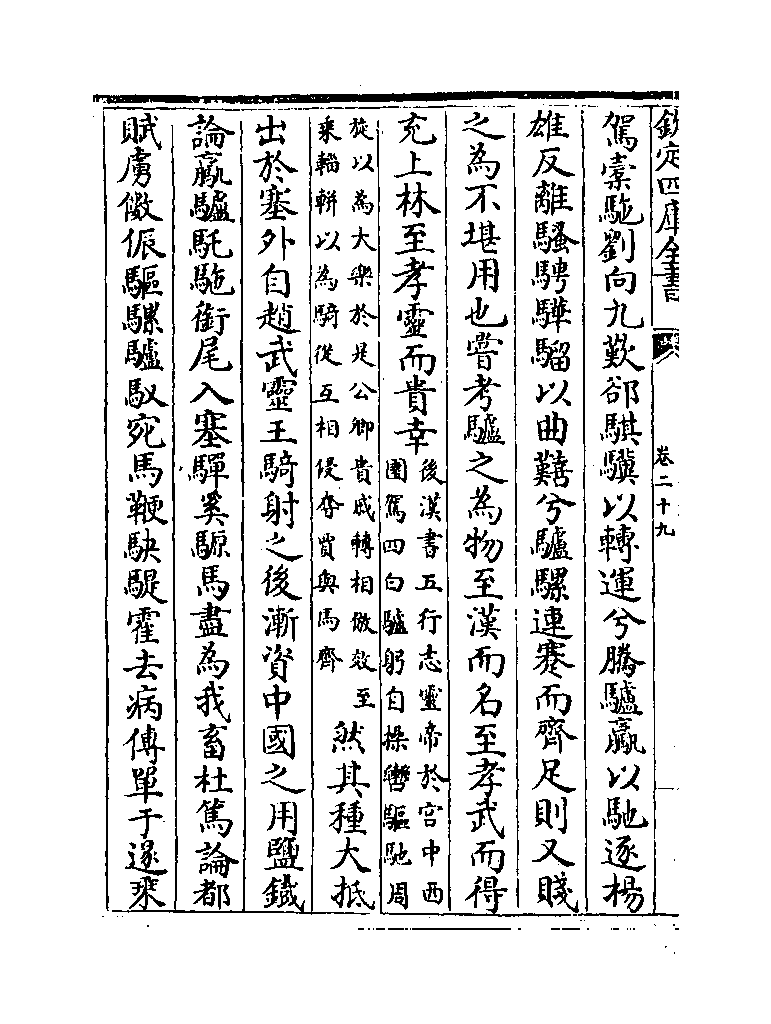 欽定四庫全書
卷二十九
駕橐駞劉向九歎郤騏驥以轉運兮騰驢驘以馳逐楊
雄反離騷騁驊騮以曲囏兮驢騾連蹇而齊足則又賤
之為不堪用也嘗考驢之為物至漢而名至孝武而得
充上林至孝靈而貴幸
後漢書五行志靈帝於宫中西
園駕四白驢躬自操轡驅馳周
旋以為大樂於是公卿貴戚轉相倣效至
乘輜軿以為騎從互相侵奪賈與馬齊
然其種大抵
出於塞外自趙武靈王騎射之後漸資中國之用鹽鐵
論驘驢馲駞銜尾入塞驒奚騵馬盡為我畜杜篤論都
賦虜儌侲驅騾驢馭宛馬鞭駃騠霍去病傳單于遂椉